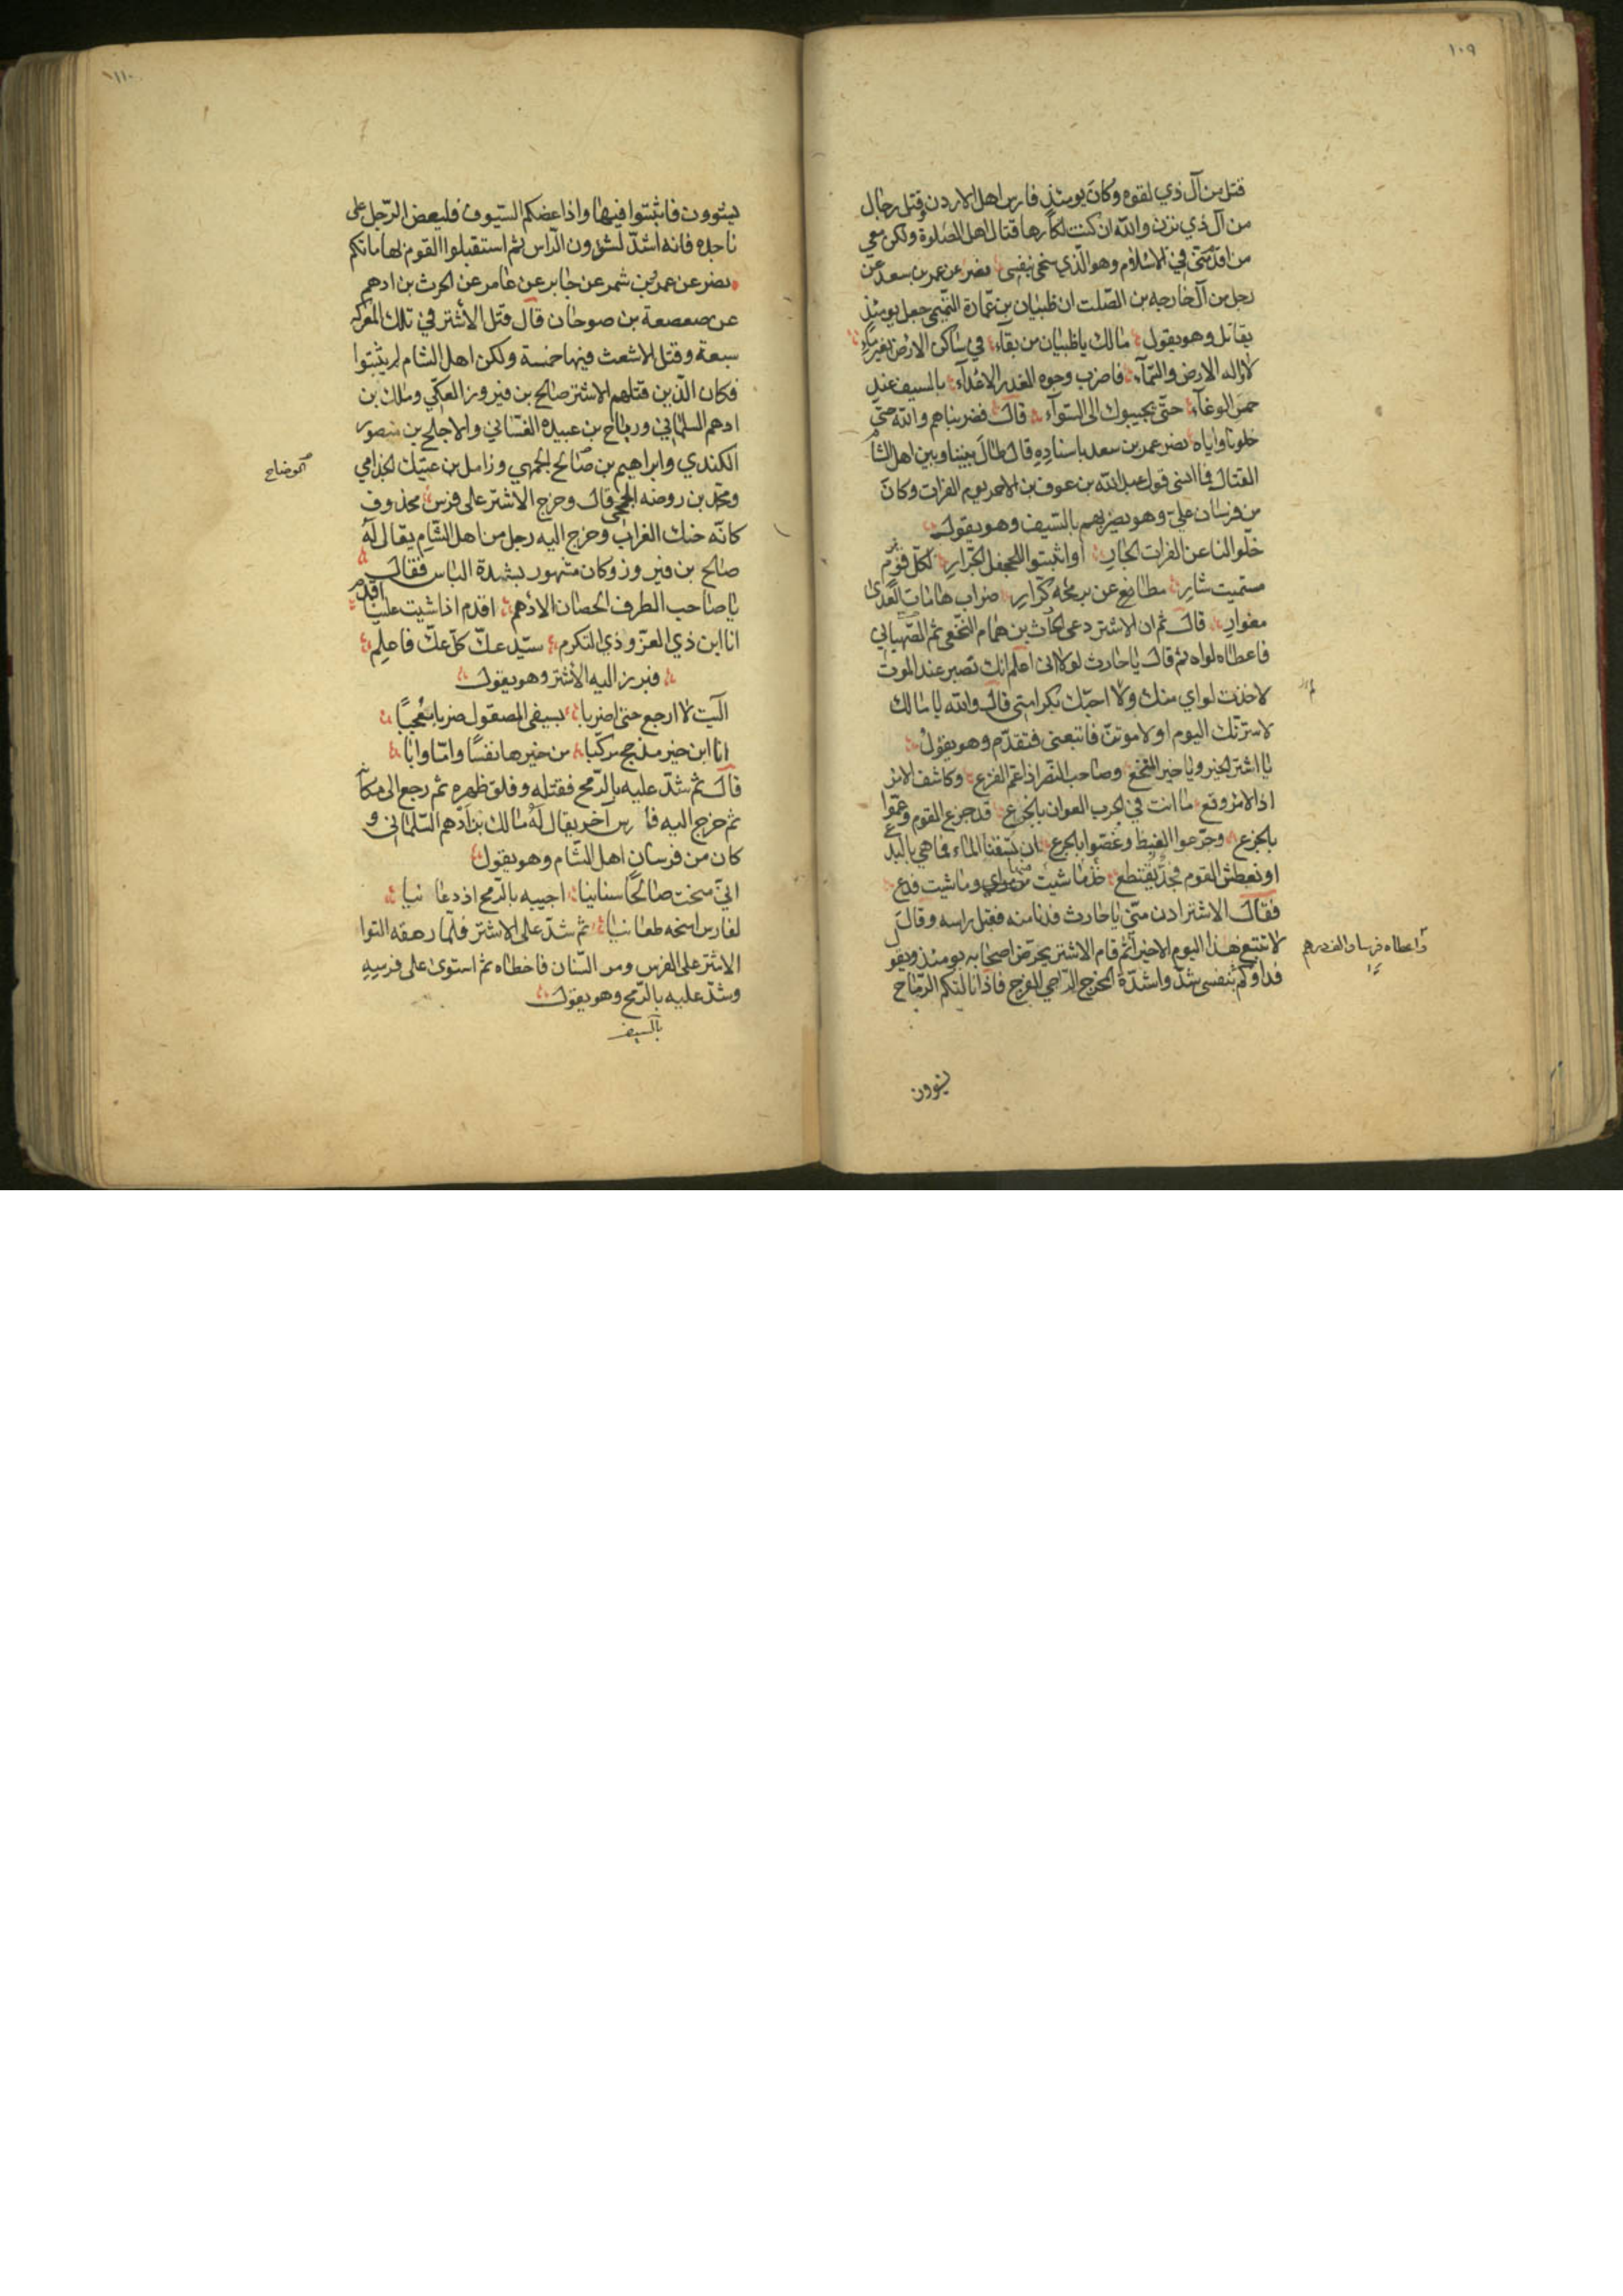 ١٠٩
قتل من آل ذي لقوه وكان يومئذ فارس اهل الاردن وقتل رجال
من آل ذي يزن والله ان كنت لكارها قتال اهل الصلوة ولكن معي
من اقدم منّي في الاسلام وهو الّذي سخى بنفسى نصر عن عمر بن سعد عن
رجل من آل خارجه بن الصّلت ان ظبيان بن عمارة التّميمى جعل يومئذ
يقاتل وهو يقول مالك يا ظبيان من بقآء في ساكن الارض بغير ماء
لا واله الارض والسّمآء فاضرب وجوه الغدر الاعدآء بالسيف عند
حمس الوغآء حتّى يجيبوك الى السّوآء قال فضربناهم والله حتّى
خلونا واياه نصر عمر بن سعد باسناده قال طال بيننا وبين اهل الشام
القتال فما انسى قول عبد الله بن عوف بن الاحمر يوم الفرات وكان
من فرسان علىّ وهو يضربهم بالسّيف وهو يقول
خلّوا لنا عن الفرات الجار أو اثبتوا للجحفل الجرّار لكلّ قرم
مستميت شار مطاعن برمحه كرّار ضراب هامات العدى
مغوار قال ثم ان الاشتر دعى الحارث بن همام النخعى ثم الصّهبانى
فاعطاه لواه ثم قال يا حارث لولا انى اعلم انك تصبر عند الموت
لاخذت لواي منك ولا احبّك بكرامتى قال والله يا مالك
لاسرّنّك اليوم او لاموتنّ فاتبعنى فتقدّم وهو يقول
يا اشتر الخير ويا خير النخع وصاحب النّصر اذا عمّ الفزع وكاشف الامر
اذا الامر وقع ما انت في الحرب العوان بالجزع قد جزع القوم وعموا
بالجزع وجرّعوا الغيظ وغصّوا بالجرع ان تسقنا الماء فما هي بالبدع
او نعطش القوم فجدّ يقتطع خذ ما شيت منها وما شيت فدع
فقال الاشتر ادن منّى يا حارث فدنا منه فقبل راسه وقال
لا تتبع هذا اليوم الا خير ثم قام الاشتر يحرّض اصحابه يومئذ ويقول
فداوكم نفسى شدّوا شدّة المحرج الرّاجي للفرج فاذا نالتكم الرّماح
ينوون
١١٠
فالتووا فيها واذا عضكم السّيوف فليعض الرّجل على
ناجذه فانه اشدّ لشؤون الرّاس ثم استقبلوا القوم بهاماتكم
نصر عن عمرو بن شمر عن جابر عن عامر عن الحرث بن ادهم
عن صعصعة بن صوحان قال قتل الأشتر في تلك المعركه
سبعة وقتل الاشعث فيها خمسة ولكن اهل الشام لم يثبتوا
فكان الّذين قتلهم الاشتر صالح بن فيروز العكّي ومالك بن
ادهم السلمانيّ ورياح بن عبيده الغسّاني والاجلح بن منصور
الكندي وابراهيم بن صالح الجمهي وزامل بن عتيك الجذامي
ومحمّد بن روضه الجمحى قال وخرج الاشتر على فرس محذوف
كانّه حنك الغراب وخرج اليه رجل من اهل الشّام يقال له
صالح بن فيروز وكان مشهور بشدة الباس فقال
يا صاحب الطرف الحصان الادهم اقدم اذا شيت علينا اقدم
انا ابن ذي العزّ وذي التكرم سيّد عكّ كلّ عكّ فاعلم
فبرز اليه الأشتر وهو يقول
آليت لا ارجع حتى اضربا بسيفي المصقول ضربا معجبًا
انا ابن خير مذحج مركّبا من خيرها نفسًا وامّا وابا
قال ثم شدّ عليه بالرّمح فقتله وفلق ظهره ثم رجع الى مكانه
ثم خرج اليه فارس آخر يقال له مالك بن ادهم السّلمانى و
كان من فرسان اهل الشّام وهو يقول
انيّ منحت صالحًا سنانيا اجيبه بالرّمح اذ دعانيا
لفارس امنحه طعانيا ثم شدّ على الاشتر فلمّا رهقه التوا
الاشتر على الفرس ومر السّنان فاخطاه ثم استوى على فرسه
وشدّ عليه بالرّمح وهو يقول
بالسيف